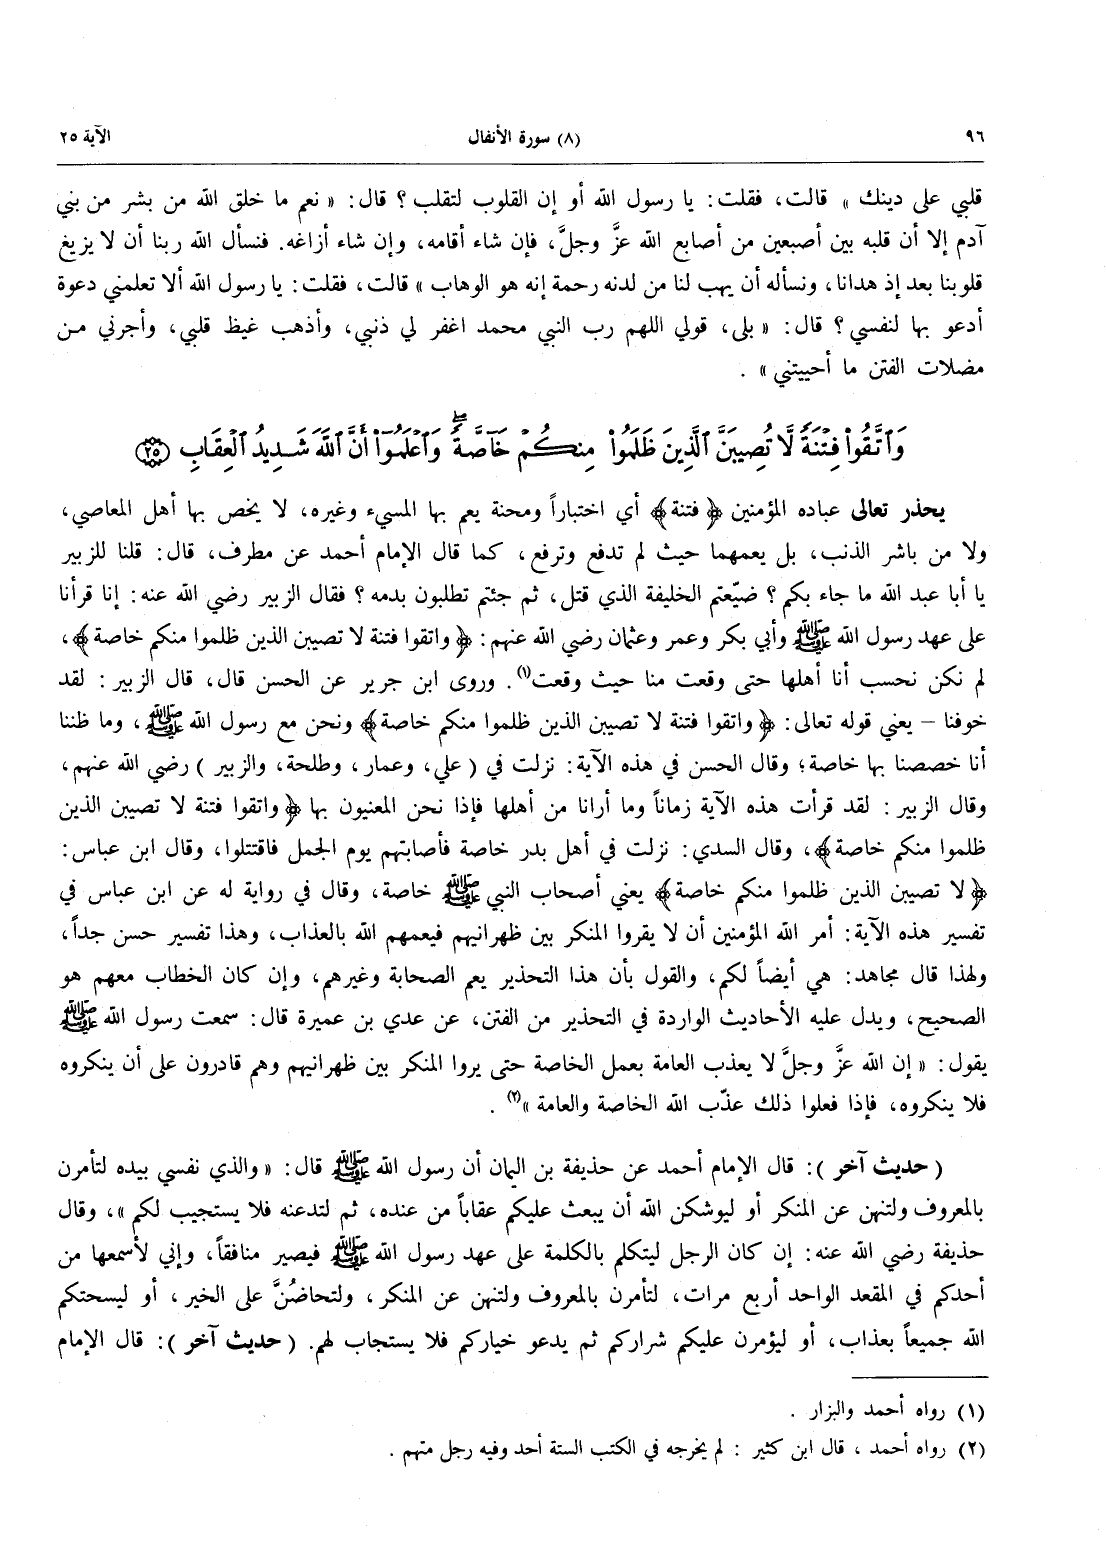 ٩٦
(٨) سورة الأنفال
الآية ٢٥
قلبي على دينك » قالت، فقلت: يا رسول الله أو إن القلوب لتقلب؟ قال: « نعم ما خلق الله من بشر من بني
آدم إلا أن قلبه بين أصبعين من أصابع الله عزَّ وجلَّ، فإن شاء أقامه، وإن شاء أزاغه. فنسأل الله ربنا أن لا يزيغ
قلوبنا بعد إذ هدانا، ونسأله أن يهب لنا من لدنه رحمة إنه هو الوهاب » قالت، فقلت: يا رسول الله ألا تعلمني دعوة
أدعو بها لنفسي؟ قال: « بلى، قولي اللهم رب النبي محمد اغفر لي ذنبي، وأذهب غيظ قلبي، وأجرني مـن
مضلات الفتن ما أحييتني » .
وَٱتَّقُوا۟ فِتْنَةً لَّا تُصِيبَنَّ ٱلَّذِينَ ظَلَمُوا۟ مِنكُمْ خَآصَّةً ۖ وَٱعْلَمُوٓا۟ أَنَّ ٱللَّهَ شَدِيدُ ٱلْعِقَابِ ﴿٢٥﴾
يحذر تعالى عباده المؤمنين ﴿ فتنة ﴾ أي اختباراً ومحنة يعم بها المسيء وغيره، لا يخص بها أهل المعاصي،
ولا من باشر الذنب، بل يعمهما حيث لم تدفع وترفع، كما قال الإمام أحمد عن مطرف، قال: قلنا للزبير
يا أبا عبد الله ما جاء بكم؟ ضيّعتم الخليفة الذي قتل، ثم جئتم تطلبون بدمه؟ فقال الزبير رضي الله عنه: إنا قرأنا
على عهد رسول الله ﷺ وأبي بكر وعمر وعثمان رضي الله عنهم: ﴿ واتقوا فتنة لا تصيبن الذين ظلموا منكم خاصة ﴾،
لم نكن نحسب أنا أهلها حتى وقعت منا حيث وقعت(١). وروى ابن جرير عن الحسن قال، قال الزبير: لقد
خوفنا - يعني قوله تعالى: ﴿ واتقوا فتنة لا تصيبن الذين ظلموا منكم خاصة ﴾ ونحن مع رسول الله ﷺ، وما ظننا
أنا خصصنا بها خاصة؛ وقال الحسن في هذه الآية: نزلت في ( علي، وعمار، وطلحة، والزبير ) رضي الله عنهم،
وقال الزبير: لقد قرأت هذه الآية زماناً وما أرانا من أهلها فإذا نحن المعنيون بها ﴿ واتقوا فتنة لا تصيبن الذين
ظلموا منكم خاصة ﴾، وقال السدي: نزلت في أهل بدر خاصة فأصابتهم يوم الجمل فاقتتلوا، وقال ابن عباس:
﴿ لا تصيبن الذين ظلموا منكم خاصة ﴾ يعني أصحاب النبي ﷺ خاصة، وقال في رواية له عن ابن عباس في
تفسير هذه الآية: أمر الله المؤمنين أن لا يقروا المنكر بين ظهرانيهم فيعمهم الله بالعذاب، وهذا تفسير حسن جداً،
ولهذا قال مجاهد: هي أيضاً لكم، والقول بأن هذا التحذير يعم الصحابة وغيرهم، وإن كان الخطاب معهم هو
الصحيح، ويدل عليه الأحاديث الواردة في التحذير من الفتن، عن عدي بن عميرة قال: سمعت رسول الله ﷺ
يقول: « إن الله عزَّ وجلَّ لا يعذب العامة بعمل الخاصة حتى يروا المنكر بين ظهرانيهم وهم قادرون على أن ينكروه
فلا ينكروه، فإذا فعلوا ذلك عذّب الله الخاصة والعامة »(٢) .
( حديث آخر ): قال الإمام أحمد عن حذيفة بن اليمان أن رسول الله ﷺ قال: « والذي نفسي بيده لتأمرن
بالمعروف ولتنهن عن المنكر أو ليوشكن الله أن يبعث عليكم عقاباً من عنده، ثم لتدعنه فلا يستجيب لكم »، وقال
حذيفة رضي الله عنه: إن كان الرجل ليتكلم بالكلمة على عهد رسول الله ﷺ فيصير منافقاً، وإني لأسمعها من
أحدكم في المقعد الواحد أربع مرات، لتأمرن بالمعروف ولتنهن عن المنكر، ولتحاضُنَّ على الخير، أو ليسحتكم
الله جميعاً بعذاب، أو ليؤمرن عليكم شراركم ثم يدعو خياركم فلا يستجاب لهم. ( حديث آخر ): قال الإمام
(١) رواه أحمد والبزار .
(٢) رواه أحمد ، قال ابن كثير : لم يخرجه في الكتب الستة أحد وفيه رجل متهم .